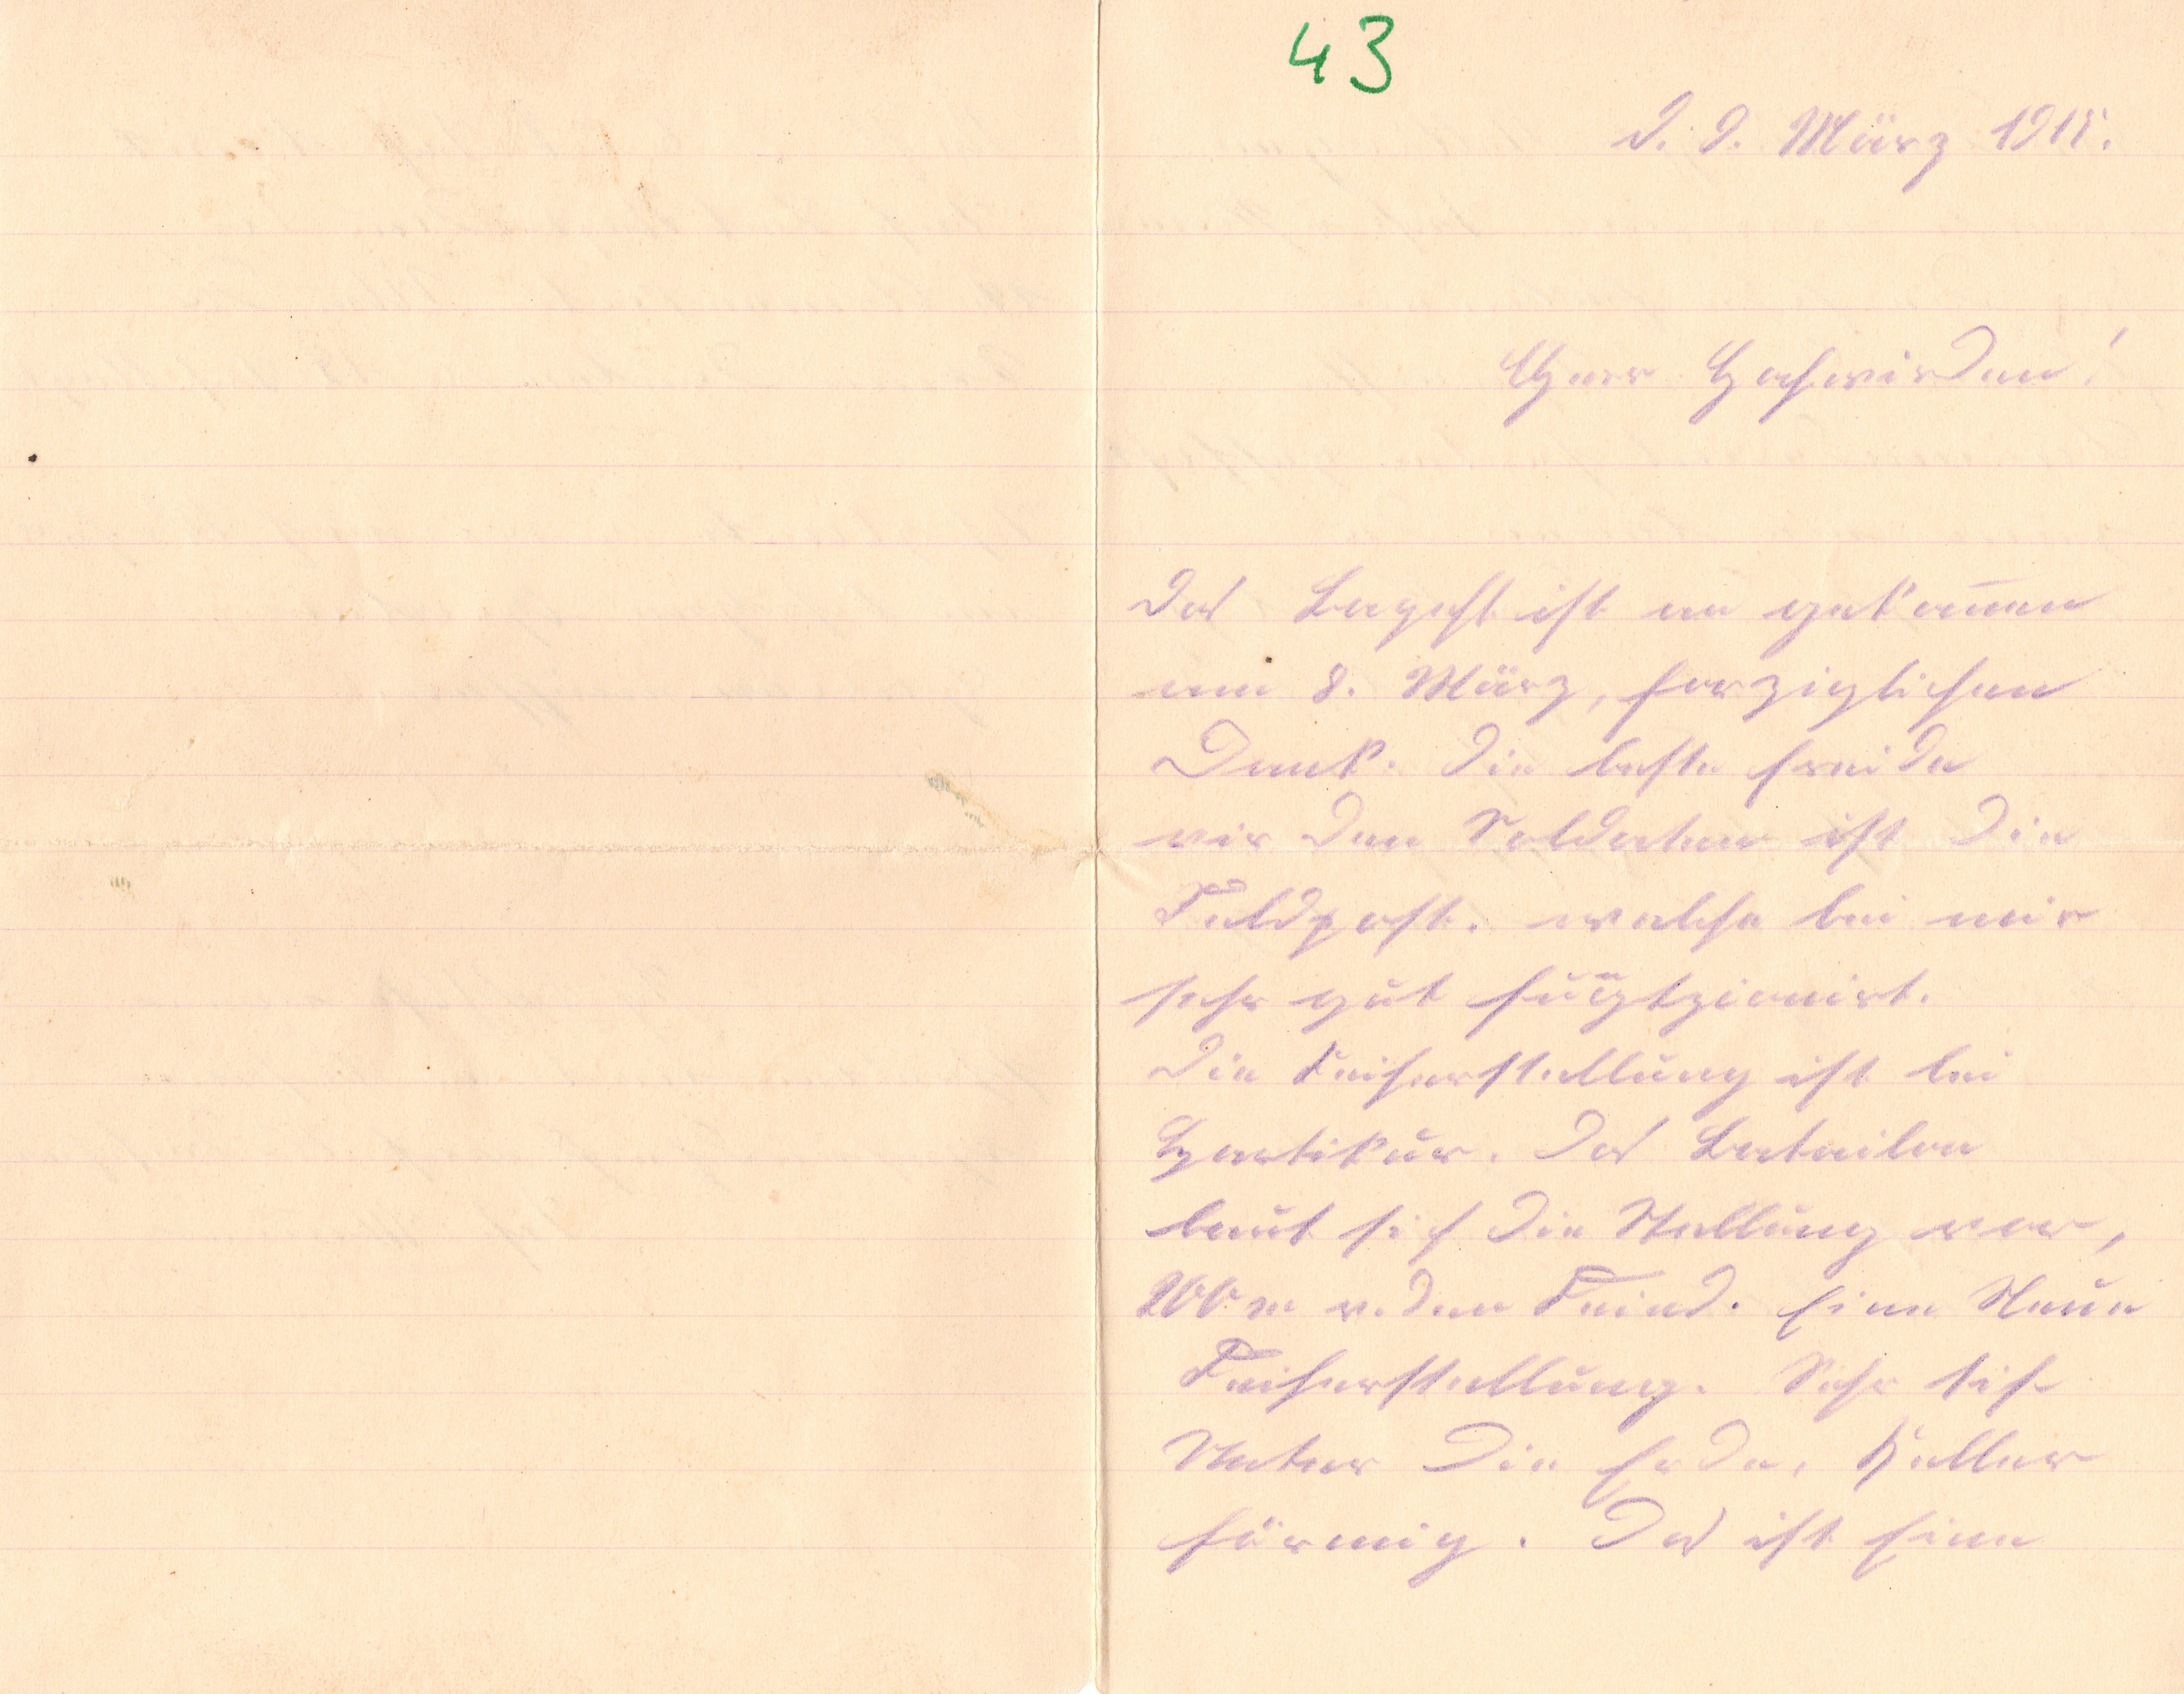 43
D. 9. März 1915.
Euer Hochwirden!
Das Bagest ist an gekom̅en
am 8. März, herziglichen
Dank. Die beste freide
vir den Soldaten ist die
Feldpost. welche bei mir
sehr gut fungtzionirt.
Die Feiherstellung ist bei
Hartikur. Das Batailon
baut sich die Stellung vor,
200 m v. den Feind. Eine Neue
Feiherstellung. Sehr tif
Unter die Erde, Keller
förmig. Das ist Eine